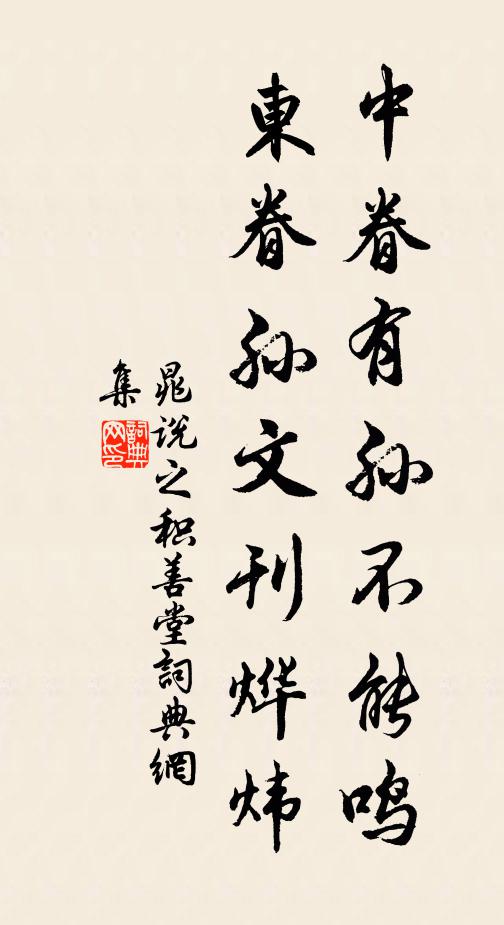 中眷有孙不能鸣
東眷孙文刊烨炜
晁说之积善堂詞典網
集
詞典
网印